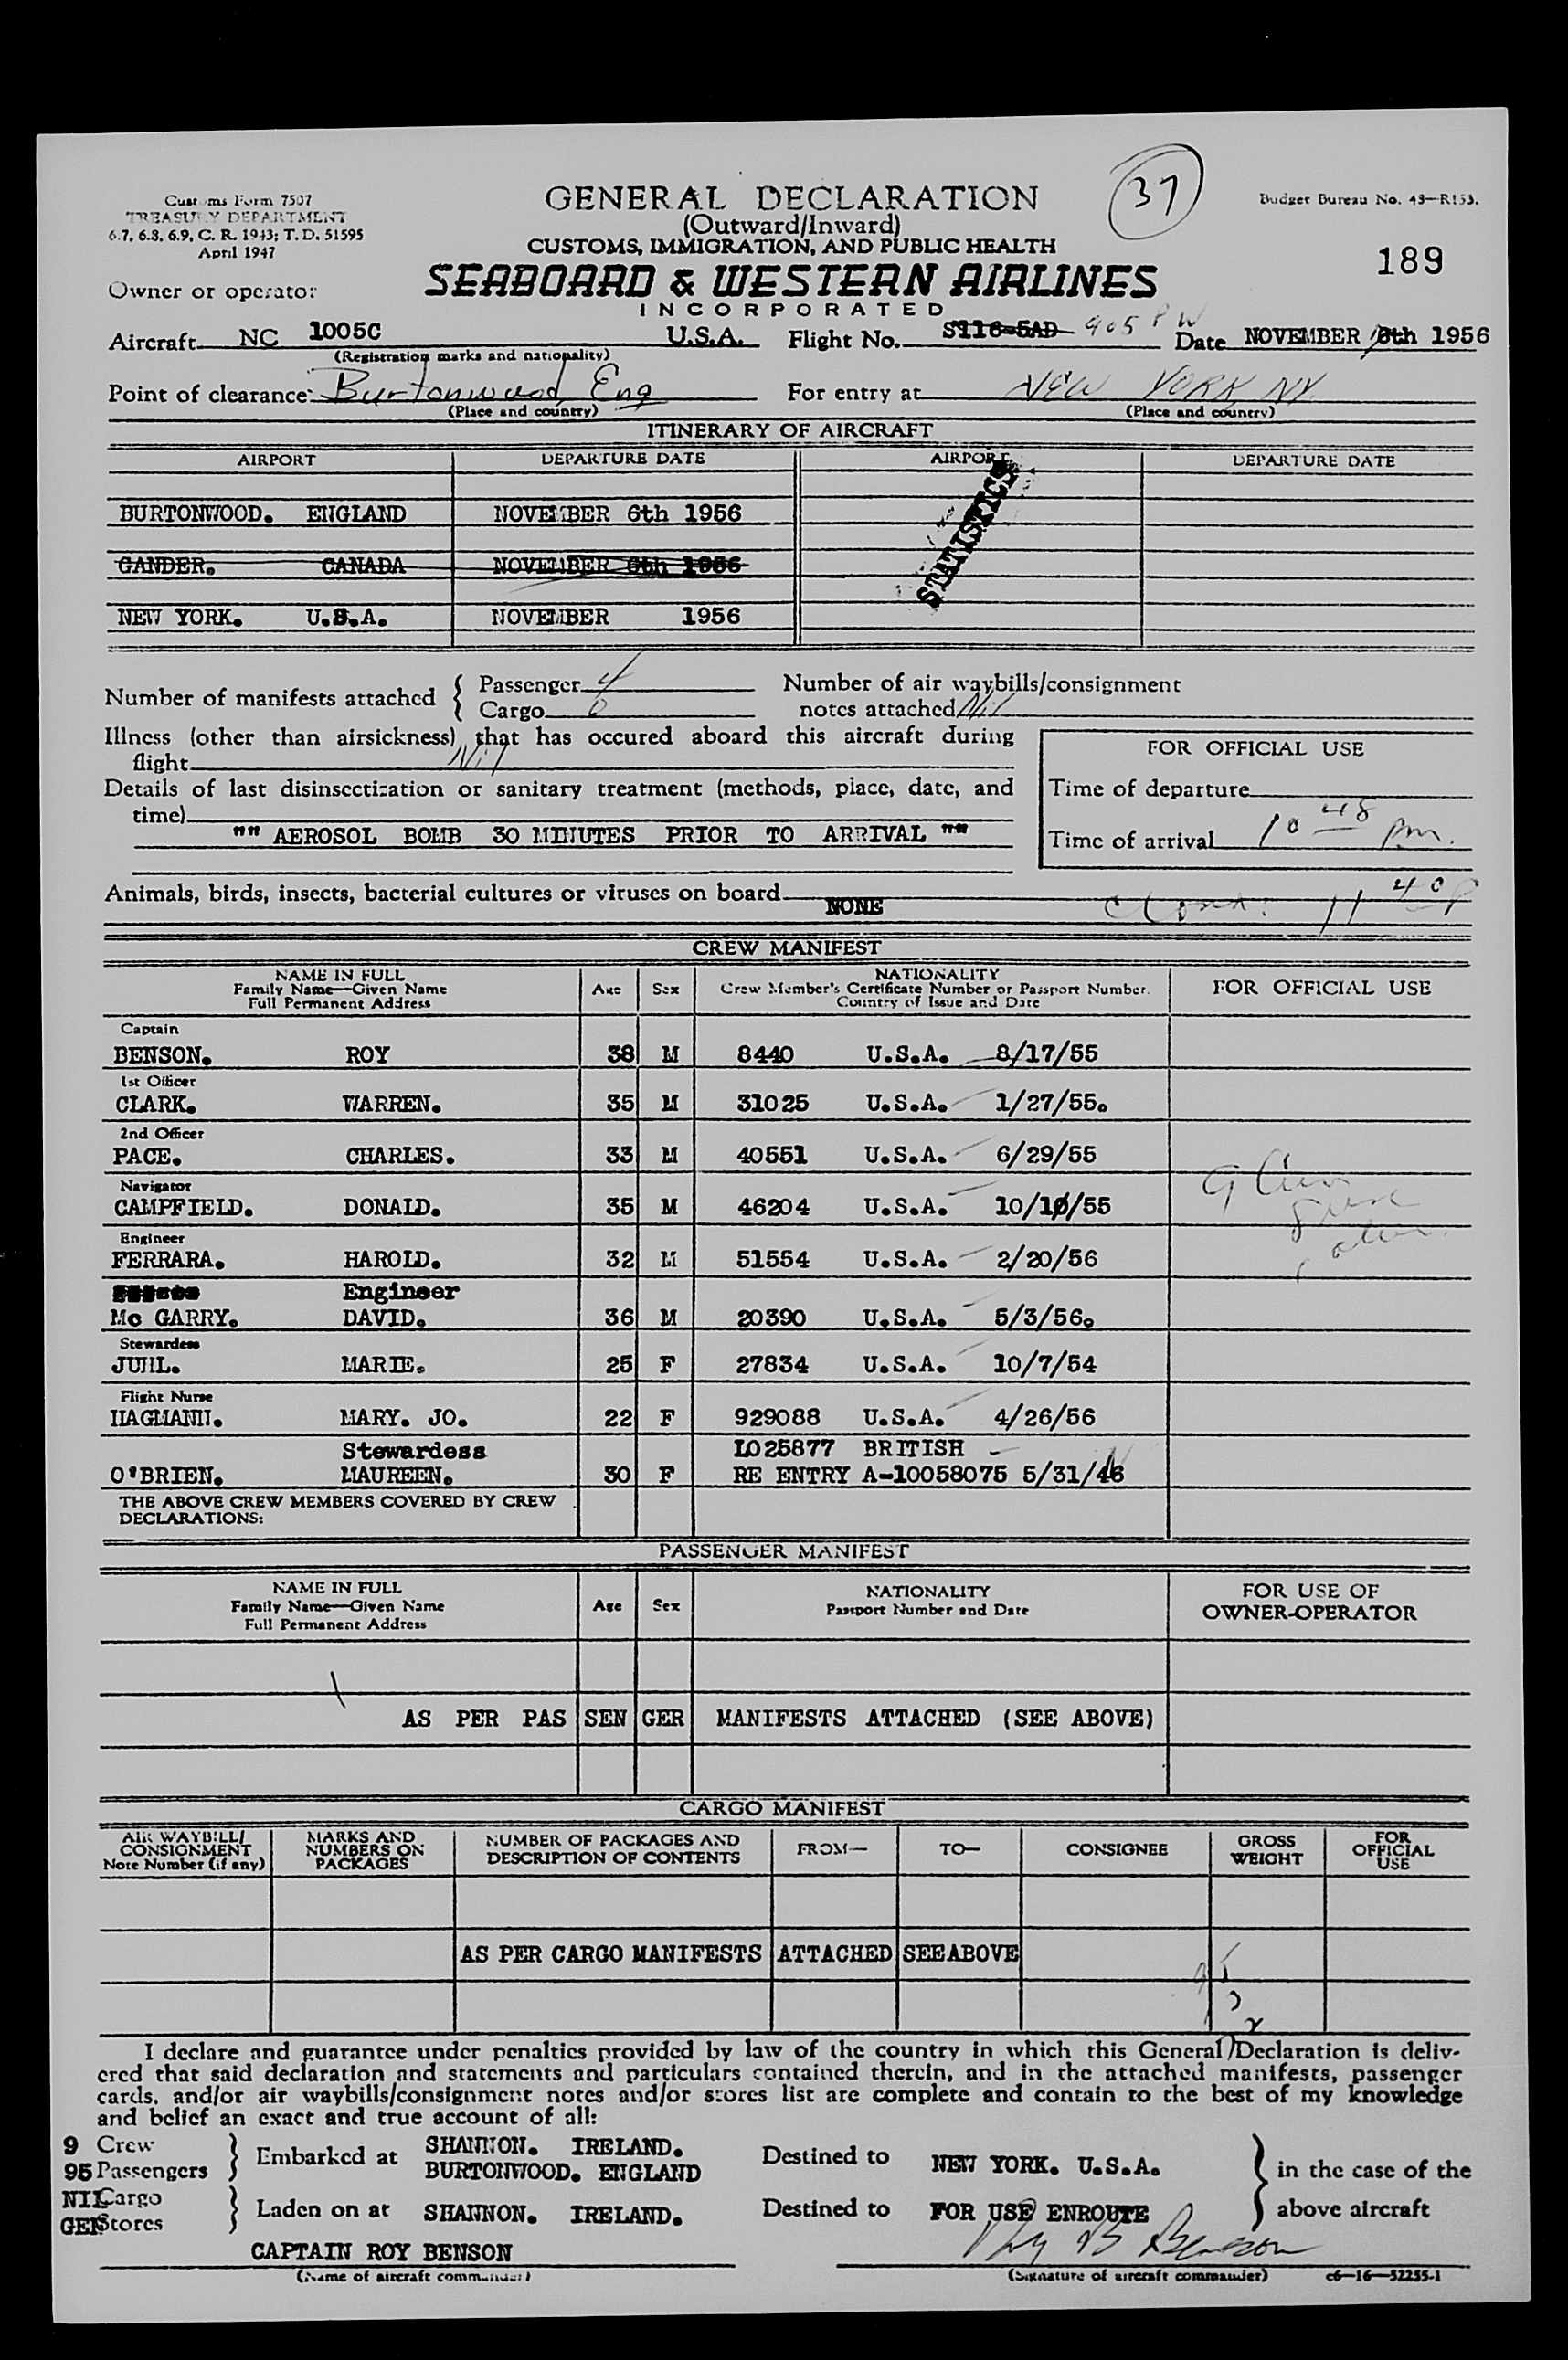 Customs Form 7507
TREASURY DEPARTMENT
6.7, 6.8, 6.9, C. R. 1943; T. D. 51595
April 1947
GENERAL DECLARATION
(Outward/Inward)
CUSTOMS, IMMIGRATION, AND PUBLIC HEALTH
37
Budget Bureau No. 43—R153.
189
Owner or operator
SEABOARD & WESTERN AIRLINES
INCORPORATED
Aircraft NC 1005C U.S.A. Flight No. S116-5AD 905 Date NOVEMBER 8th 1956
(Registration marks and nationality)
Point of clearance Burtonwood Eng For entry at NEW YORK NY
(Place and country) (Place and country)
ITINERARY OF AIRCRAFT
AIRPORT DEPARTURE DATE AIRPORT DEPARTURE DATE
STATISTICS
BURTONWOOD. ENGLAND NOVEMBER 6th 1956
GANDER. CANADA NOVEMBER 6th 1956
NEW YORK. U.S.A. NOVEMBER 1956
Number of manifests attached { Passenger 4 Number of air waybills/consignment
Cargo 0 notes attached Nil
Illness (other than airsickness) that has occured aboard this aircraft during
flight Nil
FOR OFFICIAL USE
Details of last disinsectization or sanitary treatment (methods, place, date, and
time)
Time of departure
"" AEROSOL BOMB 30 MINUTES PRIOR TO ARRIVAL ""
Time of arrival 10 48 pm.
Animals, birds, insects, bacterial cultures or viruses on board NONE
11 40 P
CREW MANIFEST
NAME IN FULL
Family Name—Given Name
Full Permanent Address
Age Sex
NATIONALITY
Crew Member's Certificate Number or Passport Number.
Country of Issue and Date
FOR OFFICIAL USE
Captain
BENSON. ROY 38 M 8440 U.S.A. 8/17/55
1st Officer
CLARK. WARREN. 35 M 31025 U.S.A. 1/27/55.
2nd Officer
PACE. CHARLES. 33 M 40551 U.S.A. 6/29/55
Navigator
CAMPFIELD. DONALD. 35 M 46204 U.S.A. 10/10/55
Engineer
FERRARA. HAROLD. 32 M 51554 U.S.A. 2/20/56
Engineer
Mc GARRY. DAVID. 36 M 20390 U.S.A. 5/3/56.
Stewardess
JUHL. MARIE. 25 F 27834 U.S.A. 10/7/54
Flight Nurse
HAGMANN. MARY. JO. 22 F 929088 U.S.A. 4/26/56
Stewardess LO25877 BRITISH
O'BRIEN. MAUREEN. 30 F RE ENTRY A-10058075 5/31/46
THE ABOVE CREW MEMBERS COVERED BY CREW
DECLARATIONS:
PASSENGER MANIFEST
NAME IN FULL
Family Name—Given Name
Full Permanent Address
Age Sex
NATIONALITY
Passport Number and Date
FOR USE OF
OWNER-OPERATOR
AS PER PAS SEN GER MANIFESTS ATTACHED (SEE ABOVE)
CARGO MANIFEST
AIR WAYBILL/
CONSIGNMENT
Note Number (if any)
MARKS AND
NUMBERS ON
PACKAGES
NUMBER OF PACKAGES AND
DESCRIPTION OF CONTENTS
FROM—
TO—
CONSIGNEE
GROSS
WEIGHT
FOR
OFFICIAL
USE
AS PER CARGO MANIFESTS ATTACHED SEE ABOVE
I declare and guarantee under penalties provided by law of the country in which this General Declaration is deliv-
ered that said declaration and statements and particulars contained therein, and in the attached manifests, passenger
cards, and/or air waybills/consignment notes and/or stores list are complete and contain to the best of my knowledge
and belief an exact and true account of all:
9 Crew
95 Passengers
} Embarked at SHANNON. IRELAND.
BURTONWOOD. ENGLAND
Destined to NEW YORK. U.S.A.
} in the case of the
above aircraft
NIL Cargo
GEN Stores
} Laden on at SHANNON. IRELAND. Destined to FOR USE ENROUTE
CAPTAIN ROY BENSON Roy B Benson
(Name of aircraft commander) (Signature of aircraft commander) c6—16—52255-1